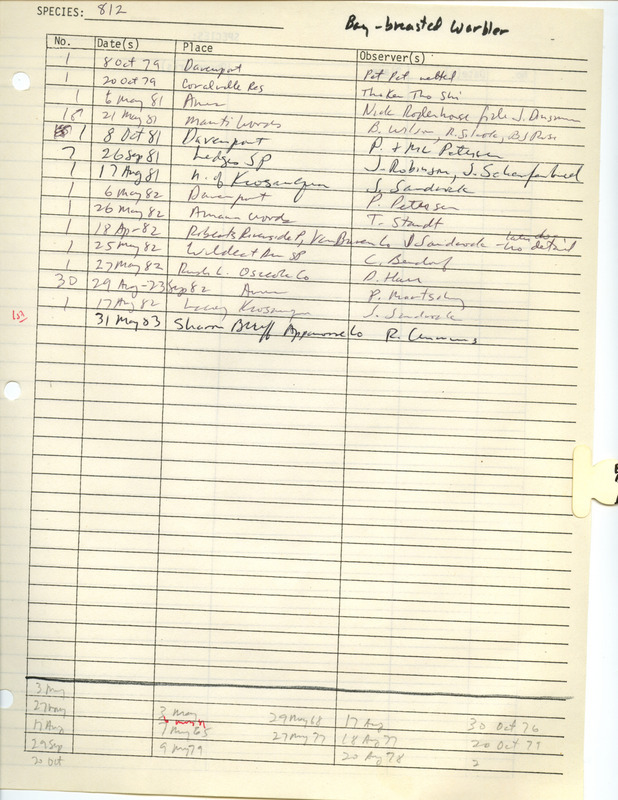 SPECIES: 812
Bay-breasted Warbler
No. Date(s) Place Observer(s)
1 8 Oct 79 Davenport Pet Pet netted
1 20 Oct 79 Coralville Res
1 6 May 81 Ames
21 May 81 Woods
1 8 Oct 81 Davenport P. & MC Petersen
7 26 Sep 81 Ledges SP J. Robinson, J.
1 17 Aug 81 N. of Keosauqua J. Sandrock
1 6 May 82 Davenport P. Petersen
1 26 May 82 Amana Woods T. Staudt
1 18 Apr 82 Roberts Riverside P, Van Buren Co J Sandrock - no detail
1 25 May 82 Wildcat Den SP C. Bendorf
1 27 May 82 Rush L. Osceola Co
30 29 Aug-23 Sep 82 Ames P. Martsching
1 17 Aug 82 Lacey Keosauqua J. Sandrock
31 May 83 Sharon Bluff Appanoose Co R. Cummins
3 May
27 May 3 May 29 May 68 17 Aug 30 Oct 76
17 Aug 7 May 65 27 May 77 18 Aug 77 20 Oct 79
29 Sep 9 May 79 20 Aug 78 2
20 Oct